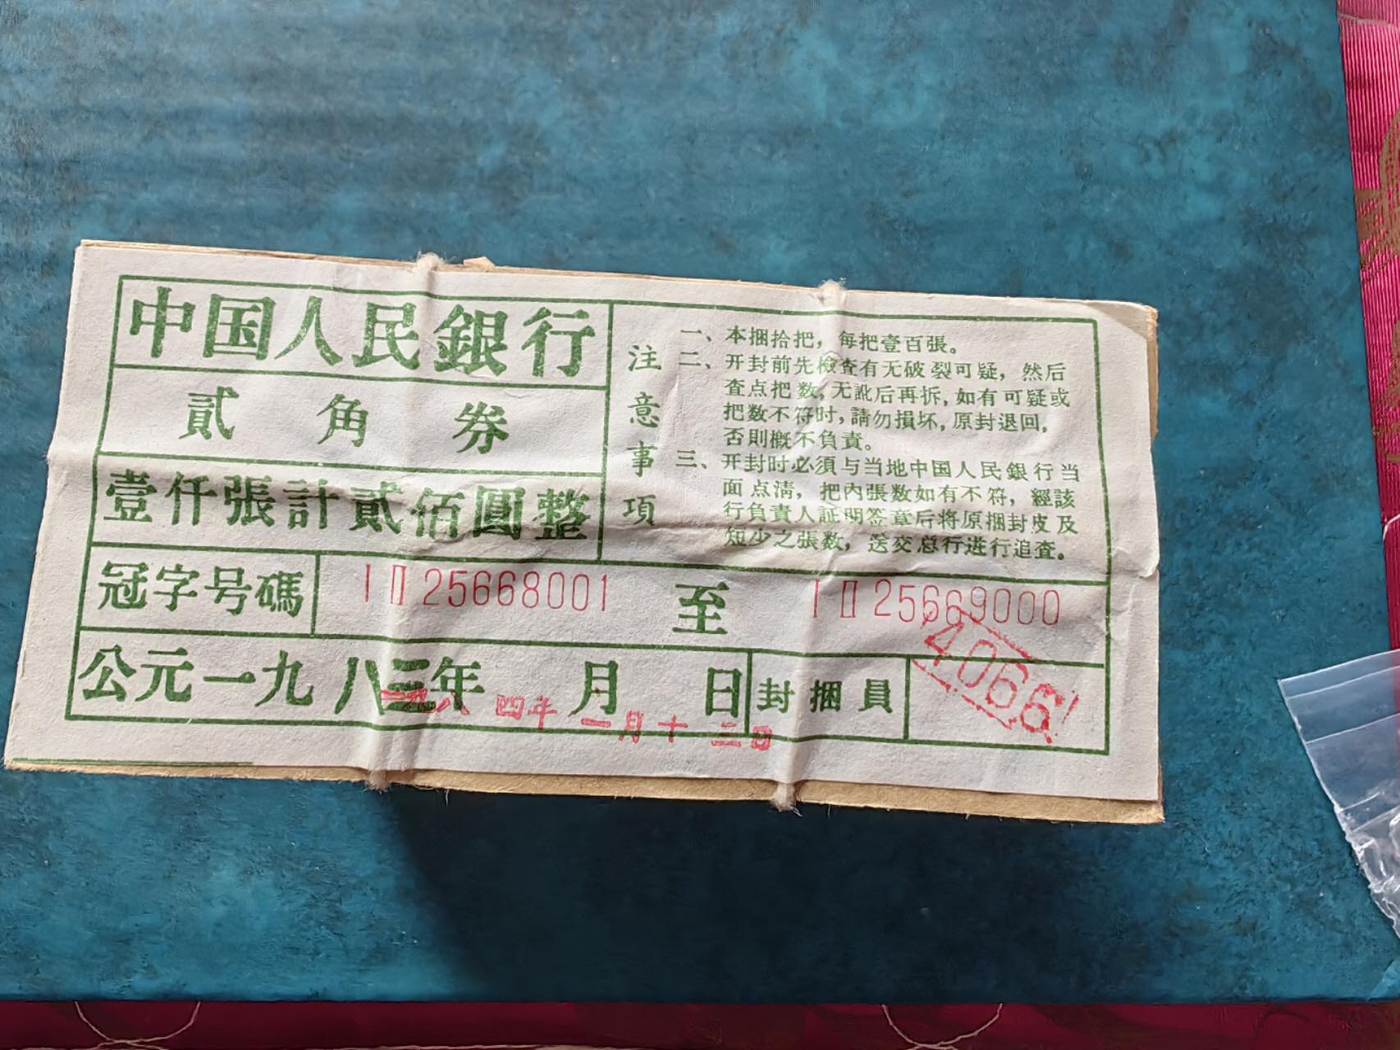 中国人民銀行
貳角券
壹仟張計貳佰圓整
注意事項
一、本捆拾把，每把壹百張。
二、开封前先檢查有无破裂可疑，然后
查点把数，无訛后再拆，如有可疑或
把数不符时，請勿損坏，原封退回，
否則概不負責。
三、开封时必須与当地中国人民銀行当
面点清，把內張数如有不符，經該
行負責人証明签章后将原捆封皮及
短少之張数，送交总行进行追查。
冠字号碼
I II 25668001 至 I II 25669000
公元一九八三年 月 日
八四年一月十三日
封捆員
4066